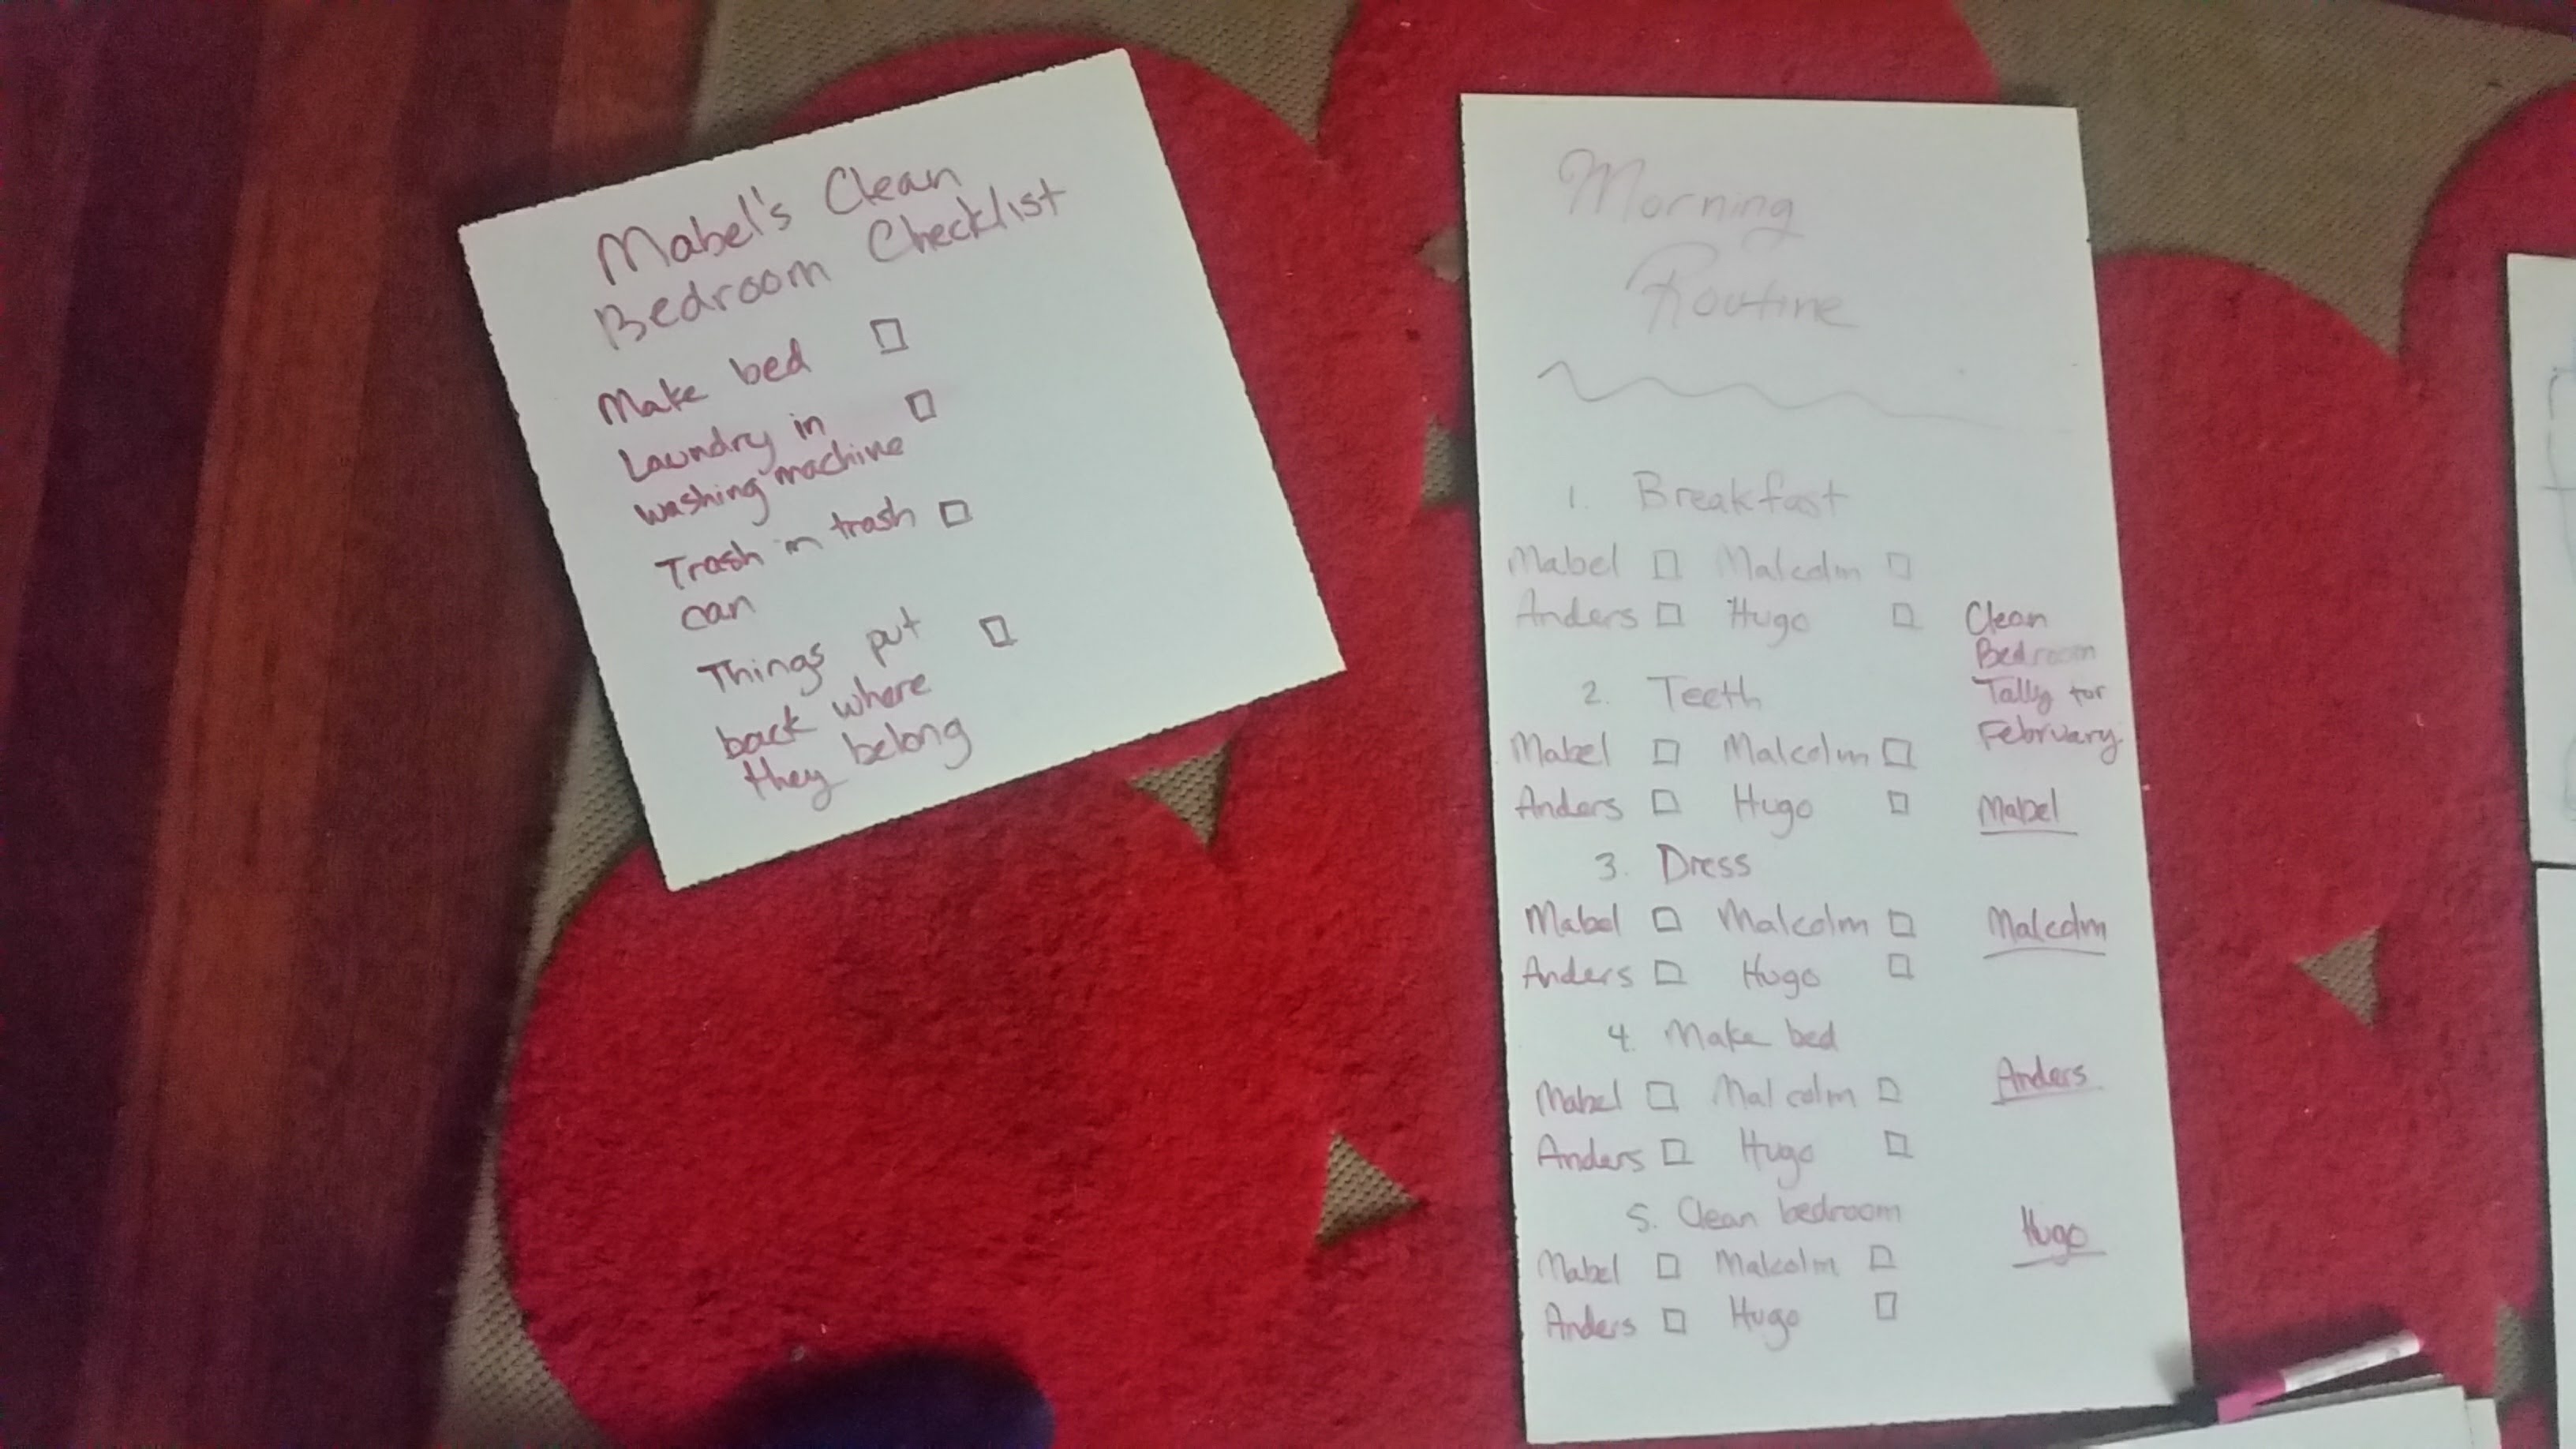 Mabel's Clean
Bedroom Checklist
Make bed □
Laundry in
washing machine □
Trash in trash □
can
Things put □
back where
they belong
Morning
Routine
1. Breakfast
Mabel □ Malcolm □
Anders □ Hugo □
2. Teeth
Mabel □ Malcolm □
Anders □ Hugo □
3. Dress
Mabel □ Malcolm □
Anders □ Hugo □
4. Make bed
Mabel □ Malcolm □
Anders □ Hugo □
5. Clean bedroom
Mabel □ Malcolm □
Anders □ Hugo □
Clean
Bedroom
Tally for
February
Mabel
Malcolm
Anders
Hugo